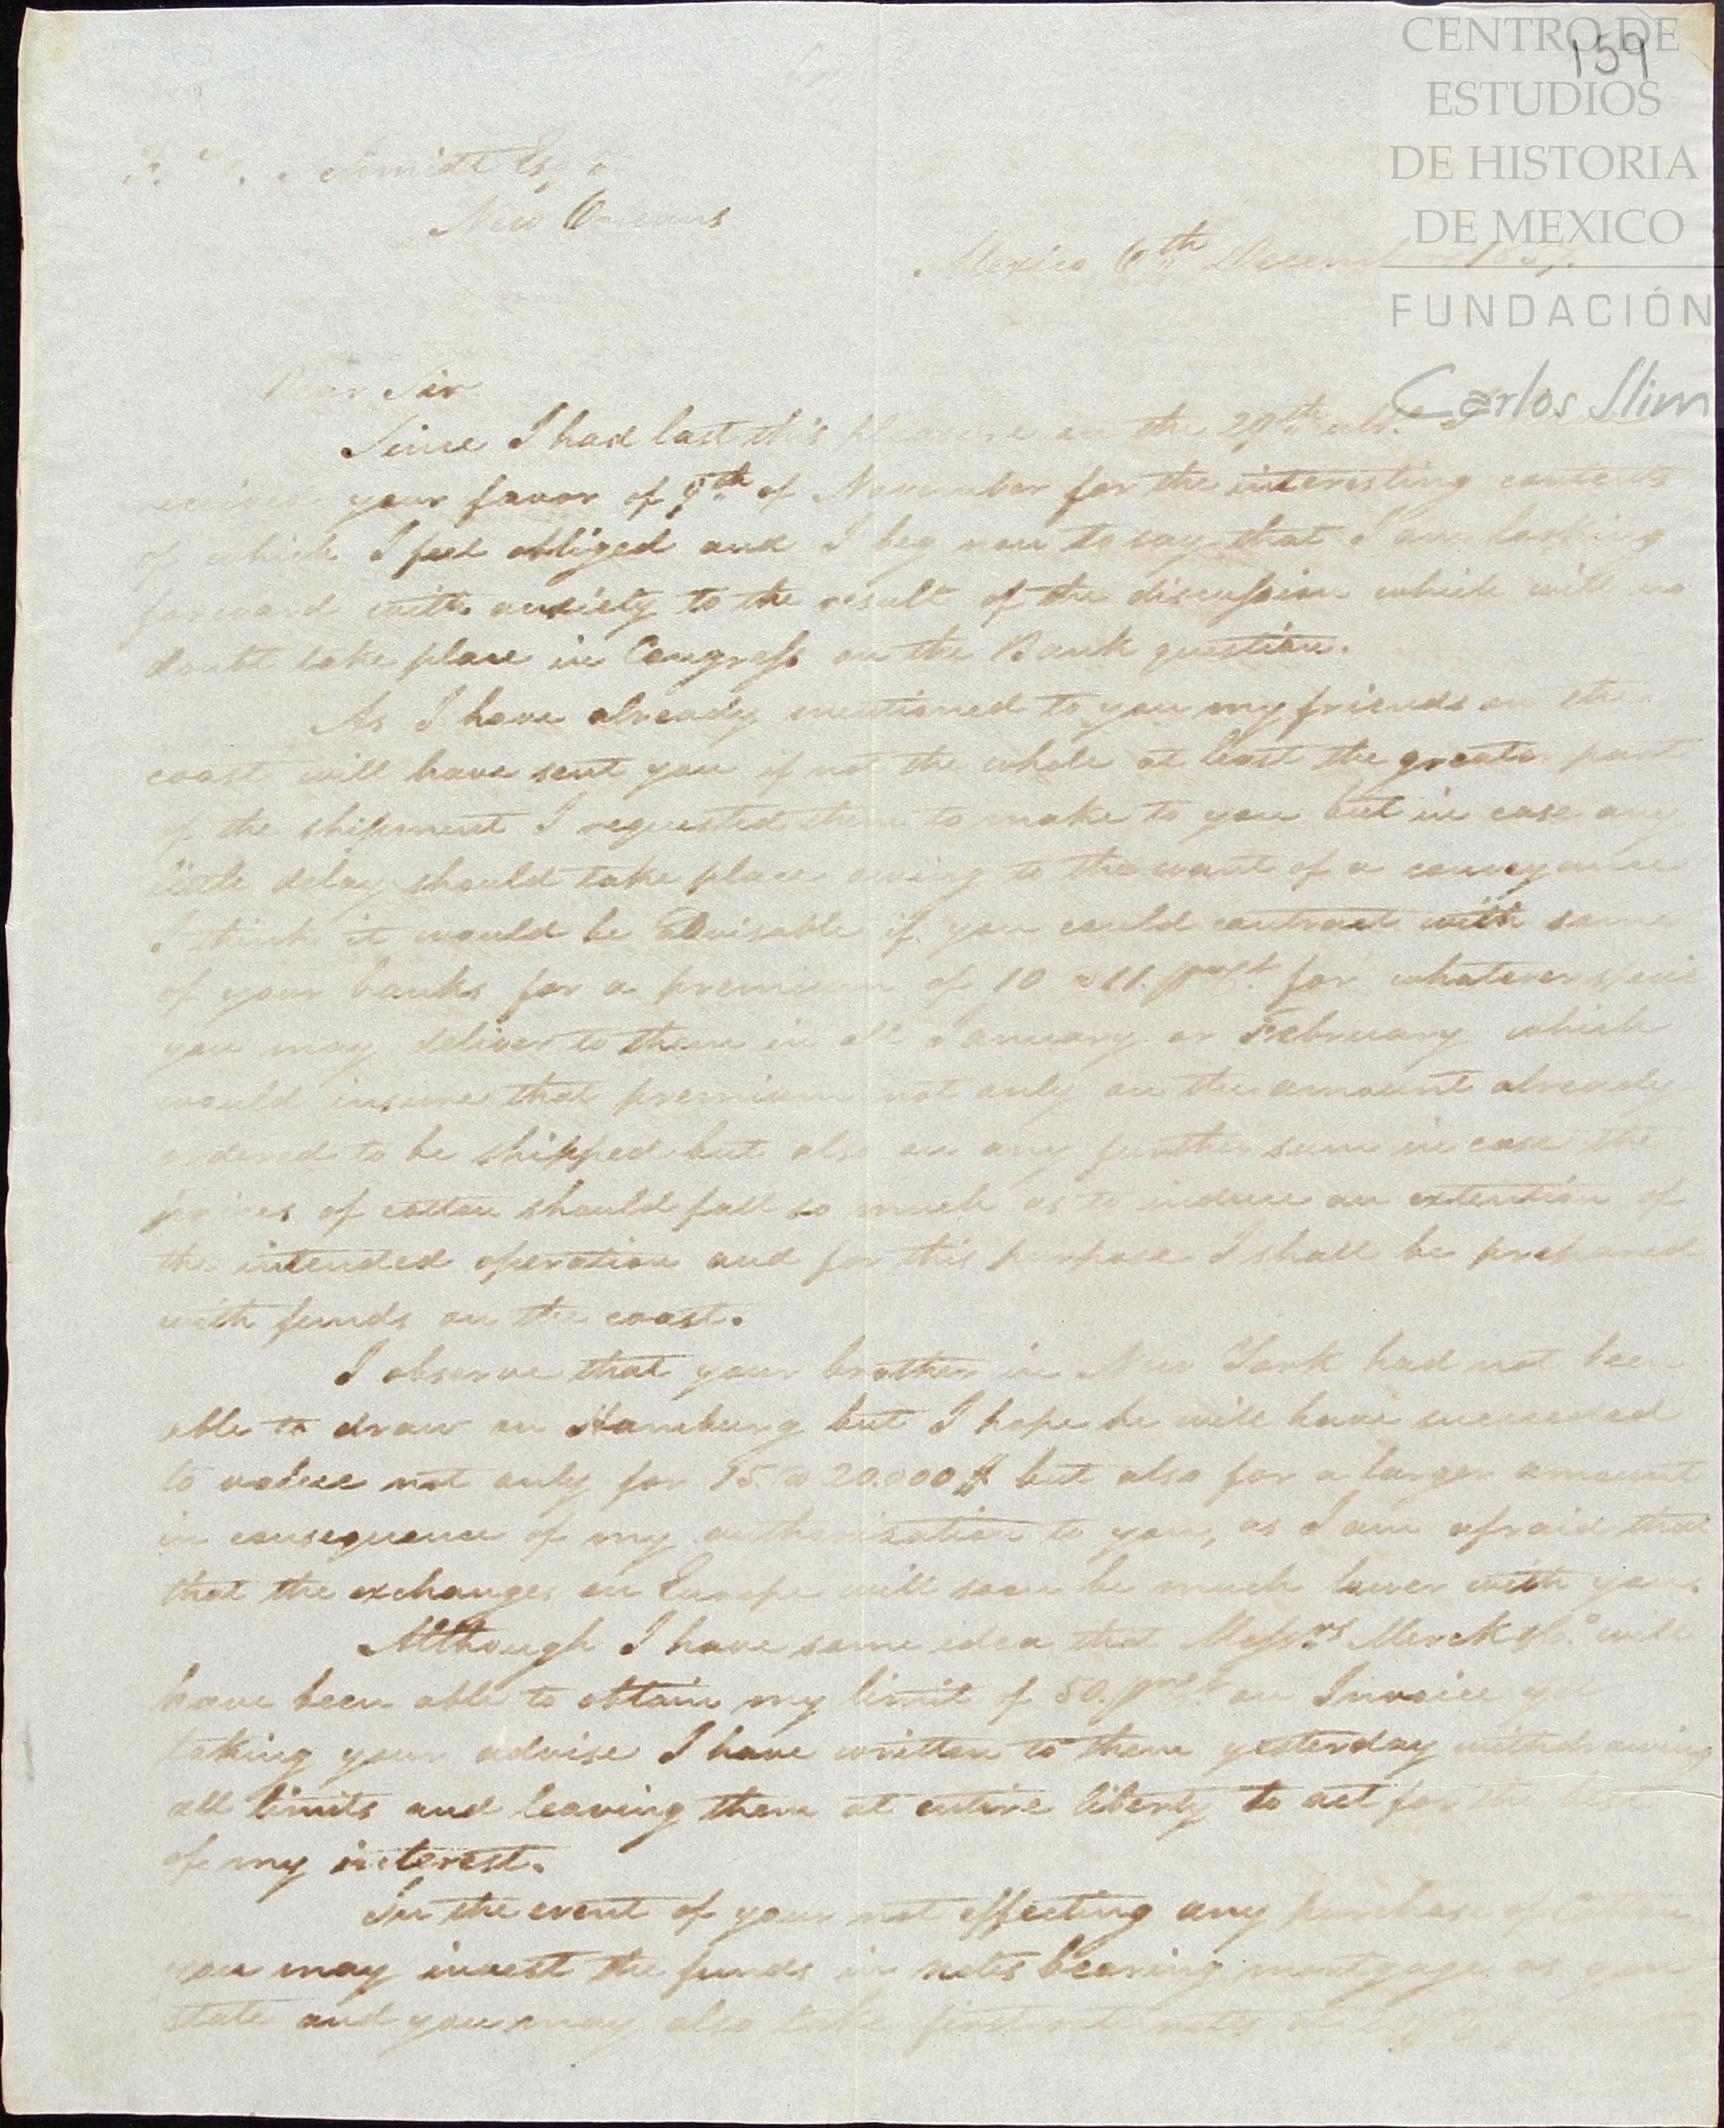 CENTRO DE
ESTUDIOS
DE HISTORIA
DE MEXICO
FUNDACIÓN
Carlos Slim
159
Schmidt Esqr
New Orleans
Mexico 6th December 1837.
Dear Sir
Since I had last this pleasure on the 29th ulto. I
received your favor of 9th of November for the interesting contents
of which I feel obliged and I beg now to say that I am looking
forward with anxiety to the result of the discussion which will no
doubt take place in Congress on the Bank question.
As I have already mentioned to you my friends on the
coast will have sent you if not the whole at least the greater part
of the shipment I requested them to make to you but in case any
little delay should take place owing to the want of a conveyance
I think it would be advisable if you could contract with some
of your banks for a premium of 10 a 11. prct. for whatever specie
you may deliver to them in all January or February which
would insure that premium not only on the amount already
ordered to be shipped but also on any further sum in case the
prices of cotton should fall so much as to induce an extention of
the intended operation and for this purpose I shall be prepared
with funds on the coast.
I observe that your brother in New York had not been
able to draw on Hamburg but I hope he will have succeeded
to value not only for 15. @ 20.000 $ but also for a larger amount
in consequence of my authorisation to you, as I am afraid that
that the exchanges on Europe will soon be much lower with you.
Although I have some idea that Messrs Merck & Co. will
have been able to obtain my limit of 50. prct on Invoice yet
taking your advise I have written to them yesterday withdrawing
all limits and leaving them at entire liberty to act for the best
of my interest.
In the event of your not effecting any purchase of Cotton
you may invest the funds in notes bearing mortgage as you
state and you may also take first rate notes at